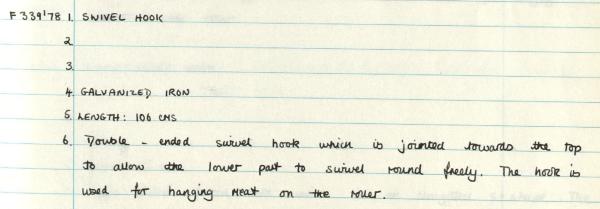 F 339'78 1. SWIVEL HOOK
2.
3.
4. GALVANIZED IRON
5. LENGTH: 106 CMS
6. Double-ended swivel hook which is jointed towards the top
to allow the lower part to swivel round freely. The hook is
used for hanging meat on the roller.